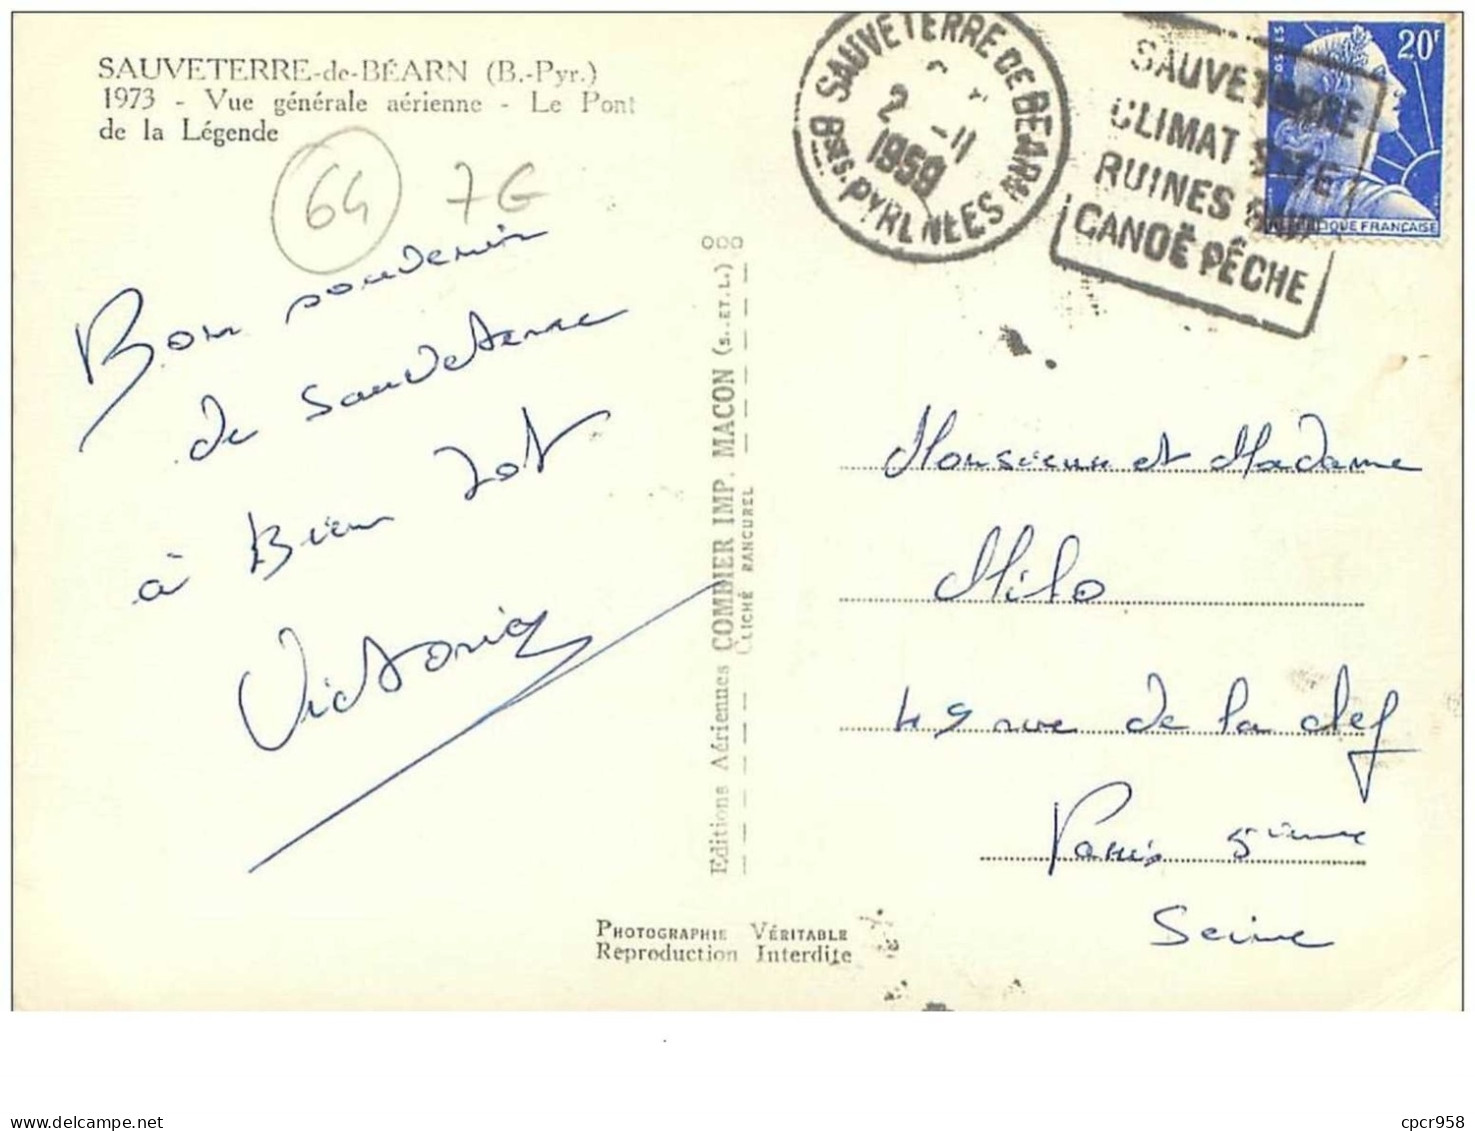 SAUVETERRE-de-BÉARN (B.-Pyr.)
1973 - Vue générale aérienne - Le Pont
de la Légende
64
7G
Bon souvenir
de Sauveterre
à Bien tot
Victoria
000
Editions Aériennes COMBIER IMP. MACON (S.-ET-L.)
CLICHÉ RANCUREL
PHOTOGRAPHIE VÉRITABLE
Reproduction Interdite
SAUVETERRE DE BEARN
2 -11
1959
Bses PYRENEES
SAUVETERRE
CLIMAT SITE
RUINES
CANOË PÊCHE
20F
POSTES
REPUBLIQUE FRANÇAISE
Monsieur et Madame
Milo
49 rue de la clef
Paris 5ieme
Seine
cpcr958